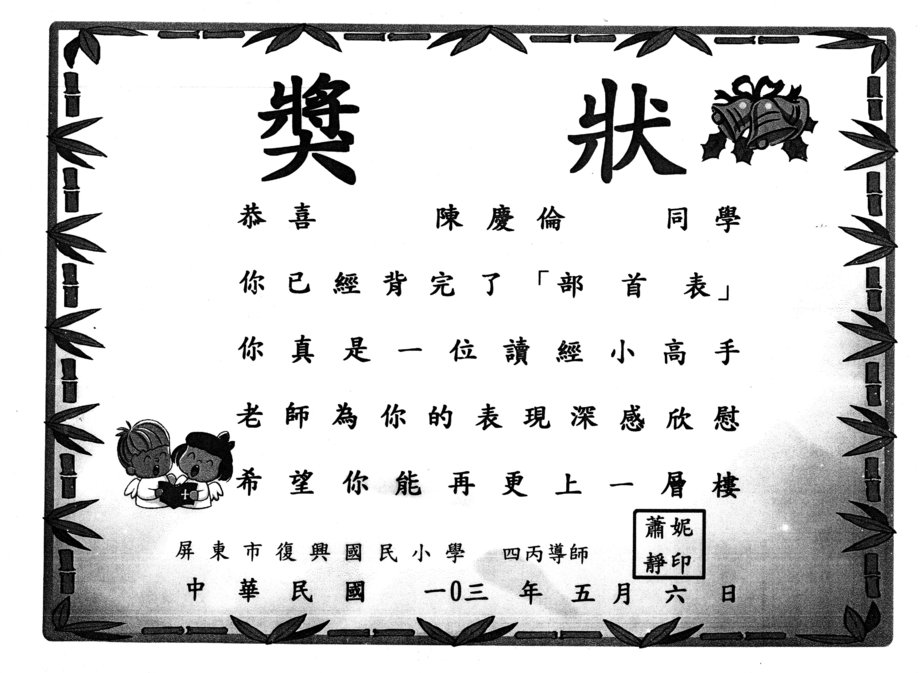 獎狀
恭喜 陳慶倫 同學
你已經背完了「部首表」
你真是一位讀經小高手
老師為你的表現深感欣慰
希望你能再更上一層樓
屏東市復興國民小學 四丙導師
蕭妮
靜印
中華民國 一0三 年五月六日